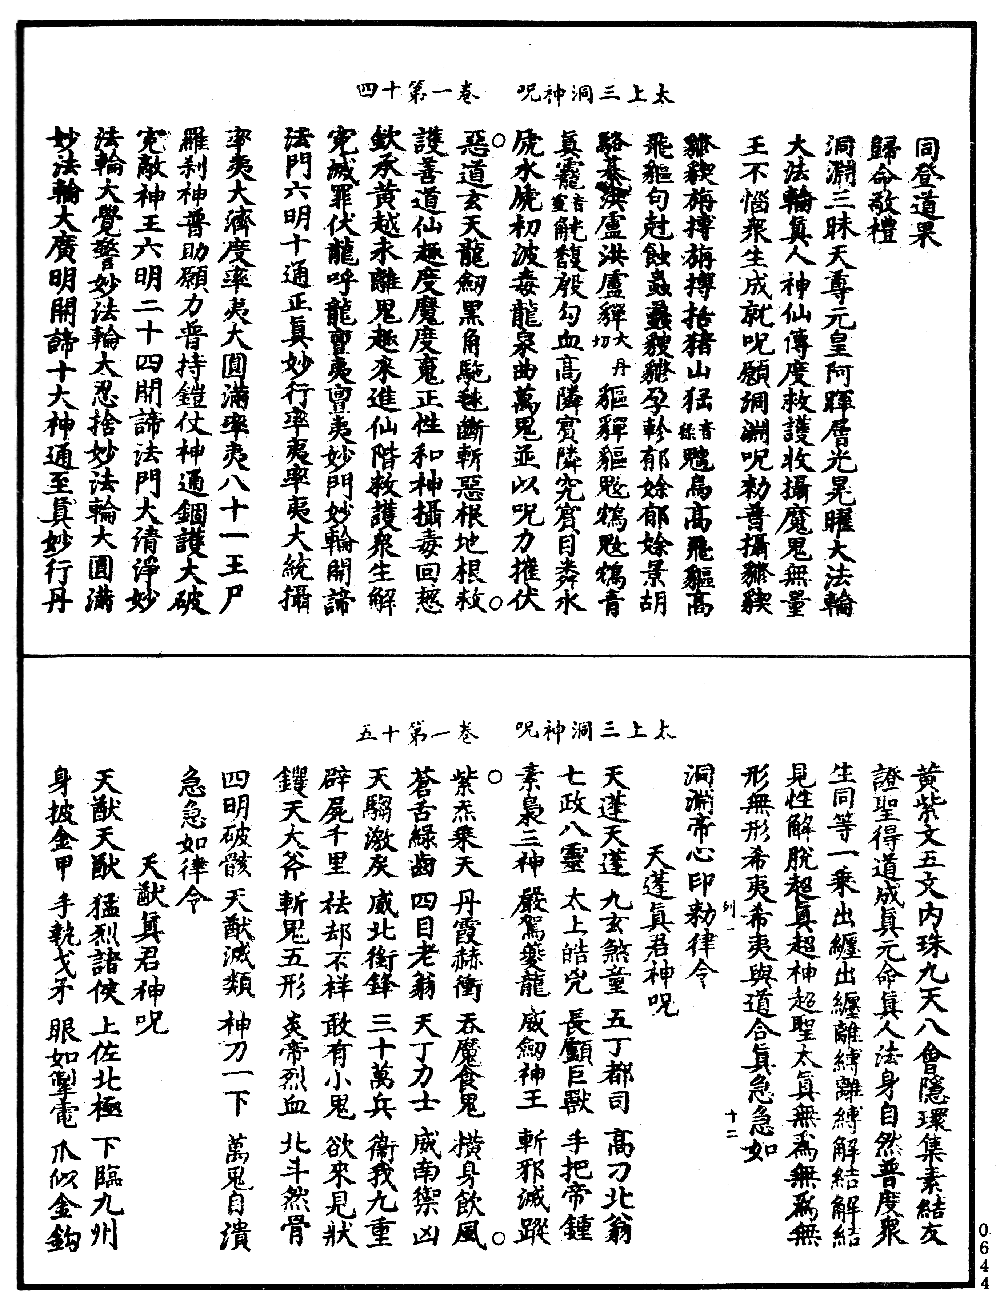 太上三洞神呪　卷一第十四
同登道果
歸命敬禮
洞淵三昧天尊元皇阿暉層光晃曜大法輪
大法輪真人神仙傳度救護收攝魔鬼無量
王不惱眾生成就呪願洞淵呪勑普攝
山猛音高飛軀高
飛軀句蝕蟲孕軫郁郁景胡
洪盧洪盧大丹切青
真音血高隣賓隣究賓目粦水
虎水虎初波毒龍泉曲萬鬼並以呪力摧伏
惡道玄天龍劒黑角斷斬惡根地根救
護善道仙趣度魔度鬼正性和神攝毒回惡
欽承黃越永離鬼趣來進仙階救護眾生解
冤滅罪伏龍呼龍亶夷亶夷妙門妙輪開諦
法門六明十通正真妙行率夷率夷大統攝
率夷大濟度率夷大圓滿率夷八十一王尸
羅剎神普助願力普持鎧仗神通錮護大破
冤敵神王六明二十四開諦法門大清淨妙
法輪大覺警妙法輪大忍捨妙法輪大圓滿
妙法輪大廣明開諦十大神通至真妙行丹
太上三洞神呪　卷一第十五
黃紫文五文內珠九天八會隱環集素結友
證聖得道成真元命真人法身自然普度眾
生同等一乘出纏出纏離縛離縛解結解結
見性解脫超真超神超聖太真無為無為無
形無形希夷希夷與道合真急急如
洞淵帝心印勑律令
天蓬真君神呪
天蓬天蓬　九玄煞童　五丁都司　高刁北翁
七政八靈　太上皓兇　長顱巨獸　手把帝鍾
素梟三神　嚴駕夔龍　威劒神王　斬邪滅蹤
紫炁乘天　丹霞赫衝　吞魔食鬼　橫身飲風
蒼舌綠齒　四目老翁　天丁力士　威南禦凶
天騶激戾　威北銜鋒　三十萬兵　衞我九重
辟屍千里　祛却不祥　敢有小鬼　欲來見狀
钁天大斧　斬鬼五形　炎帝烈血　北斗然骨
四明破骸　天猷滅類　神刀一下　萬鬼自潰
急急如律令
天猷真君神呪
天猷天猷　猛烈諸侯　上佐北極　下臨九州
身披金甲　手執戈矛　眼如掣電　爪似金鈎
列一　十二
0644